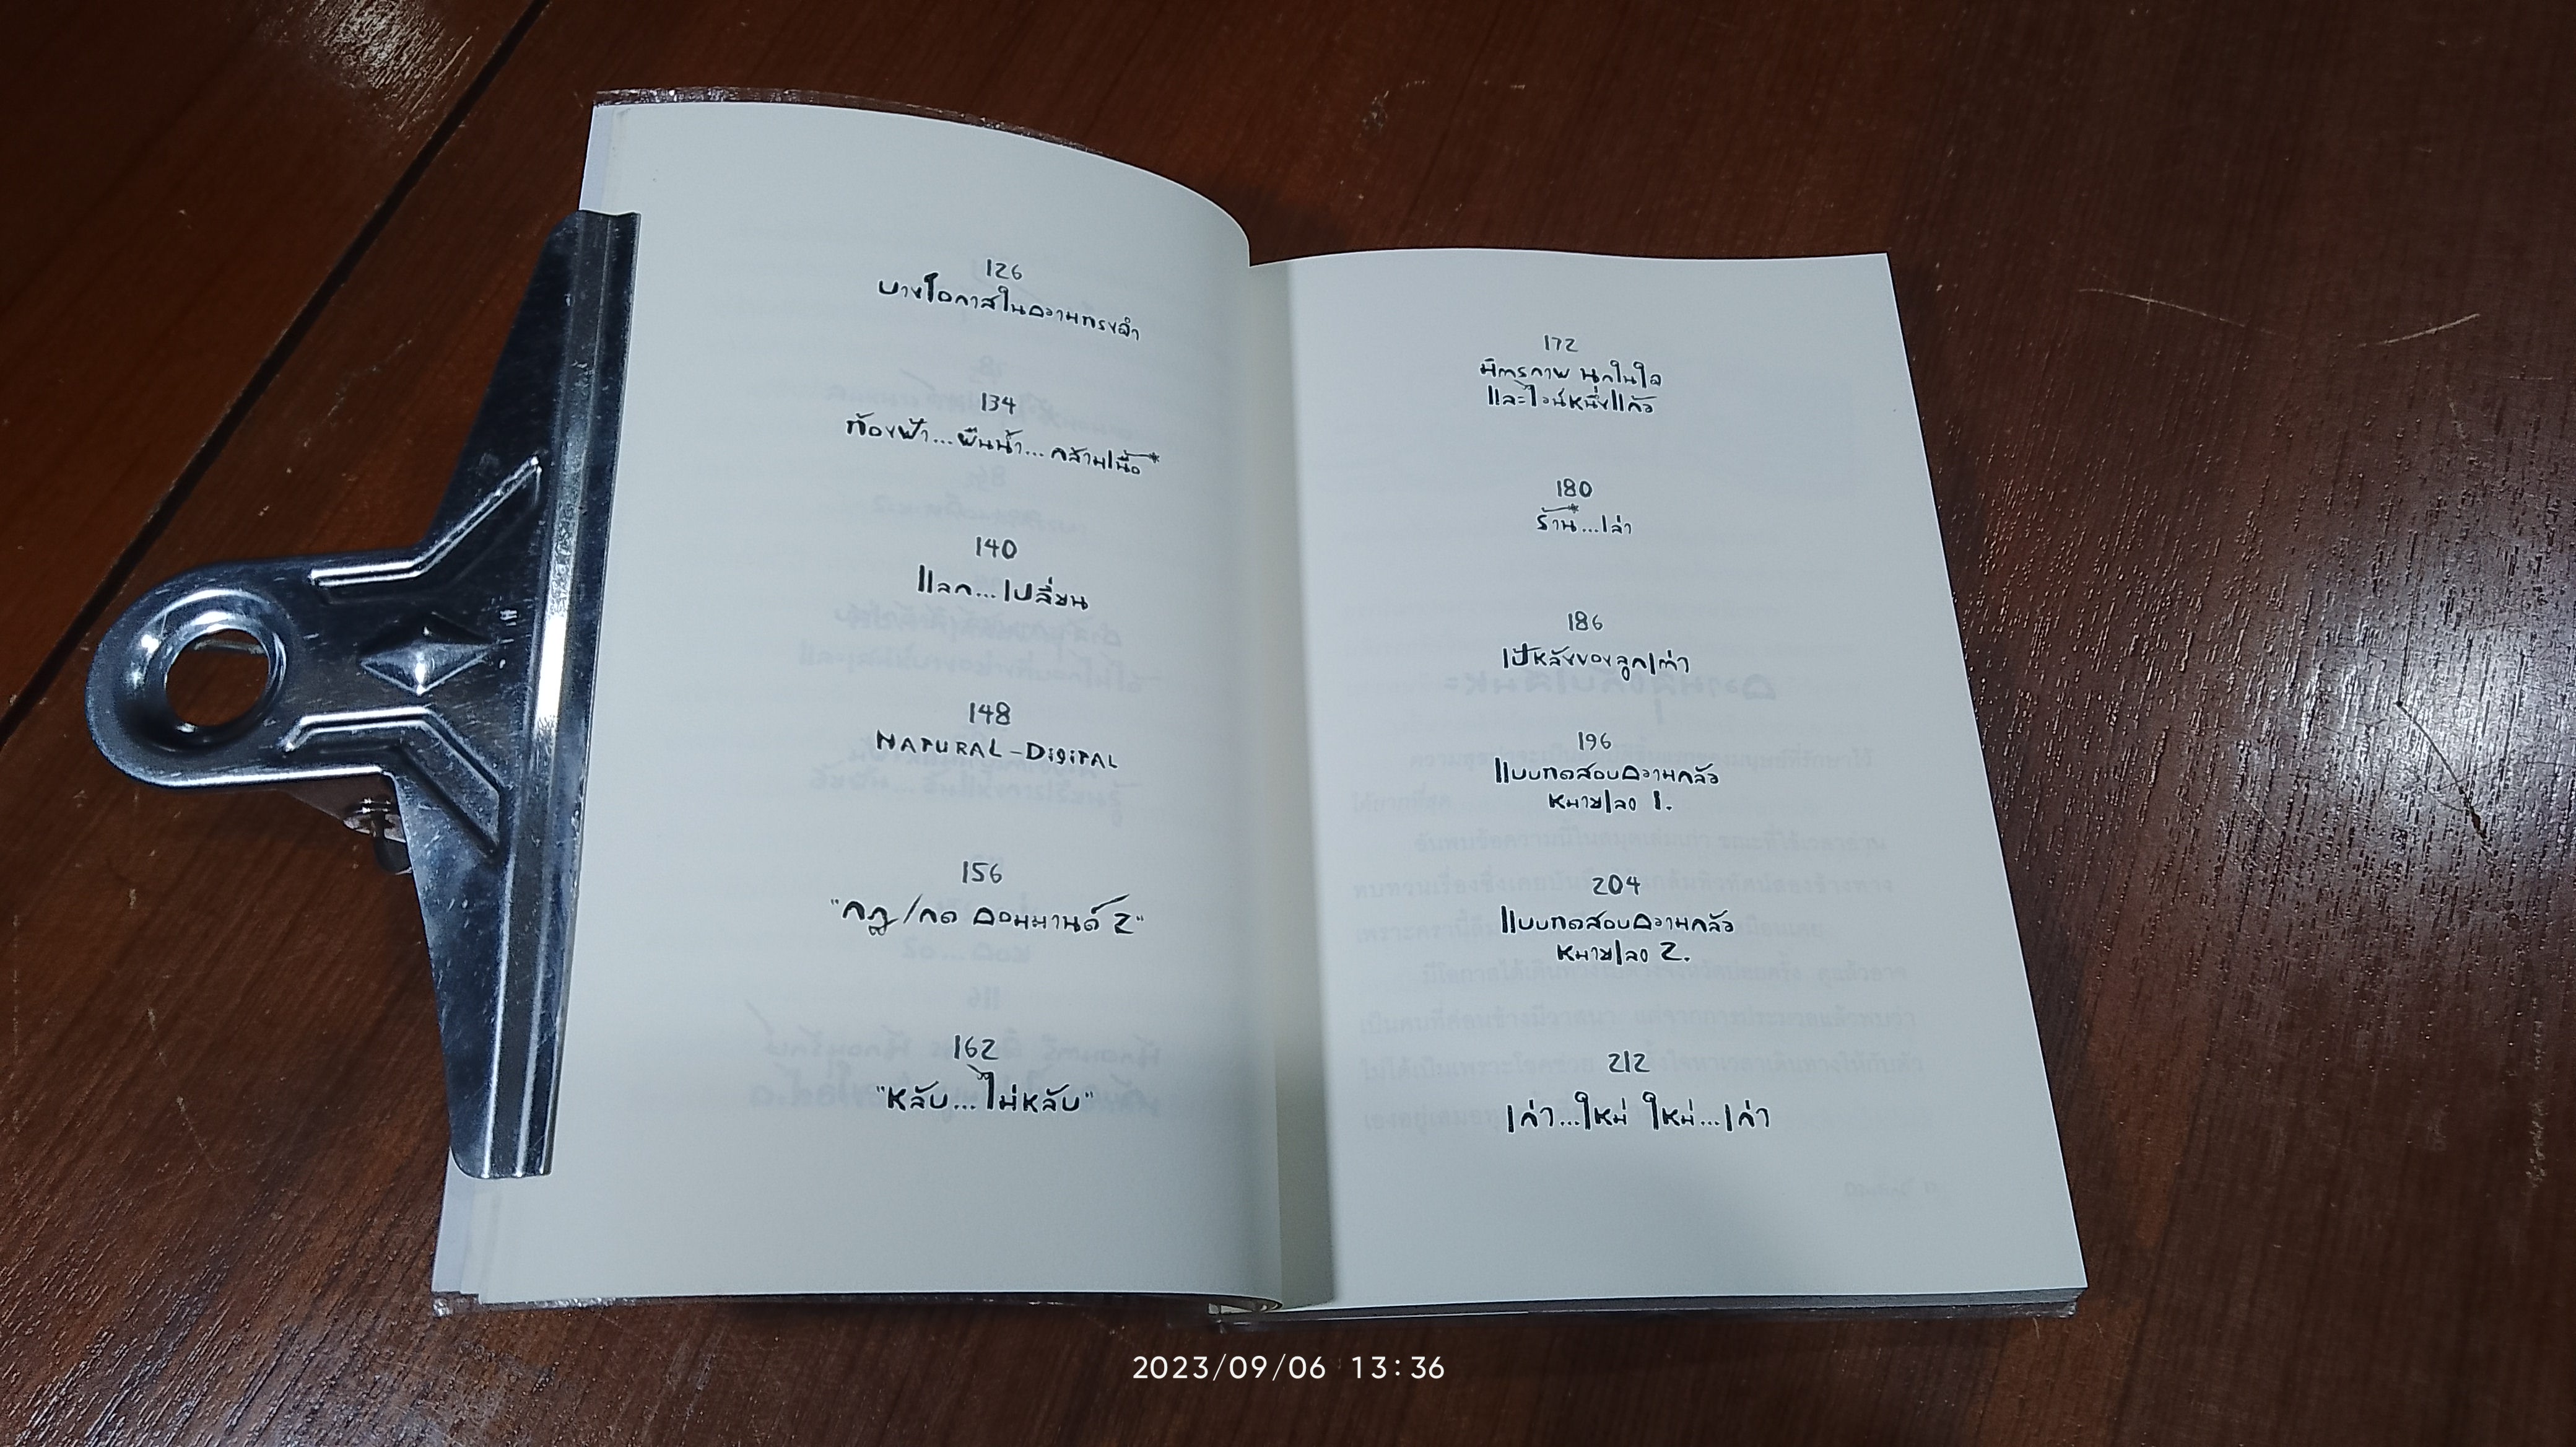 126
บางโอกาสในความทรงจำ
134
ท้องฟ้า...ผืนน้ำ...กล้ามเนื้อ*
140
แลก...เปลี่ยน
148
NATURAL-DIGITAL
156
"กฎ/กด คอมมานด์ Z"
162
"หลับ...ไม่หลับ"
172
มิตรภาพ นุกในใจ
และไวน์หนึ่งแก้ว
180
ร้าน*...เล่า
186
เป้หลังของลูกเต่า
196
แบบทดสอบความกลัว
หมายเลข 1.
204
แบบทดสอบความกลัว
หมายเลข 2.
212
เก่า...ใหม่ ใหม่...เก่า
2023/09/06 13:36